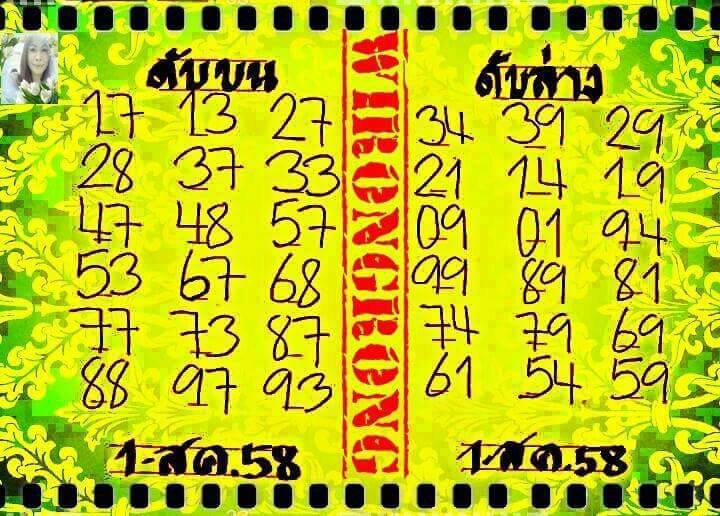 ดับบน
17 13 27
28 37 33
47 48 57
53 67 68
77 73 87
88 97 93
1-สค.58
WIRONGRONG
ดับล่าง
34 39 29
21 14 19
09 01 94
99 89 81
74 79 69
61 54 59
1-สค.58